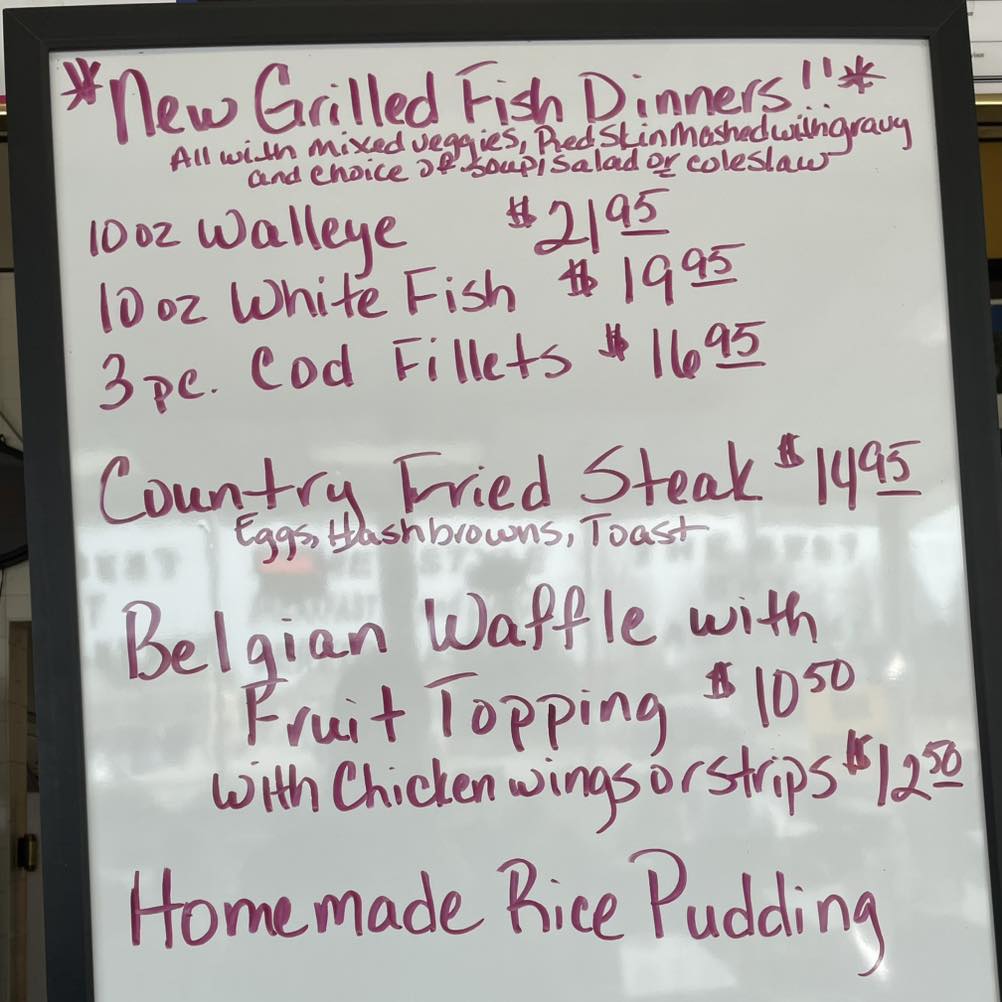 *New Grilled Fish Dinners!!*
All with mixed veggies, Red Skin Mashed with gravy
and choice of soup, salad or coleslaw
10oz Walleye $21.95
10oz White Fish $19.95
3pc. Cod Fillets $16.95
Country Fried Steak $14.95
Eggs, Hashbrowns, Toast
Belgian Waffle with
Fruit Topping $10.50
with Chicken wings or strips $12.50
Homemade Rice Pudding